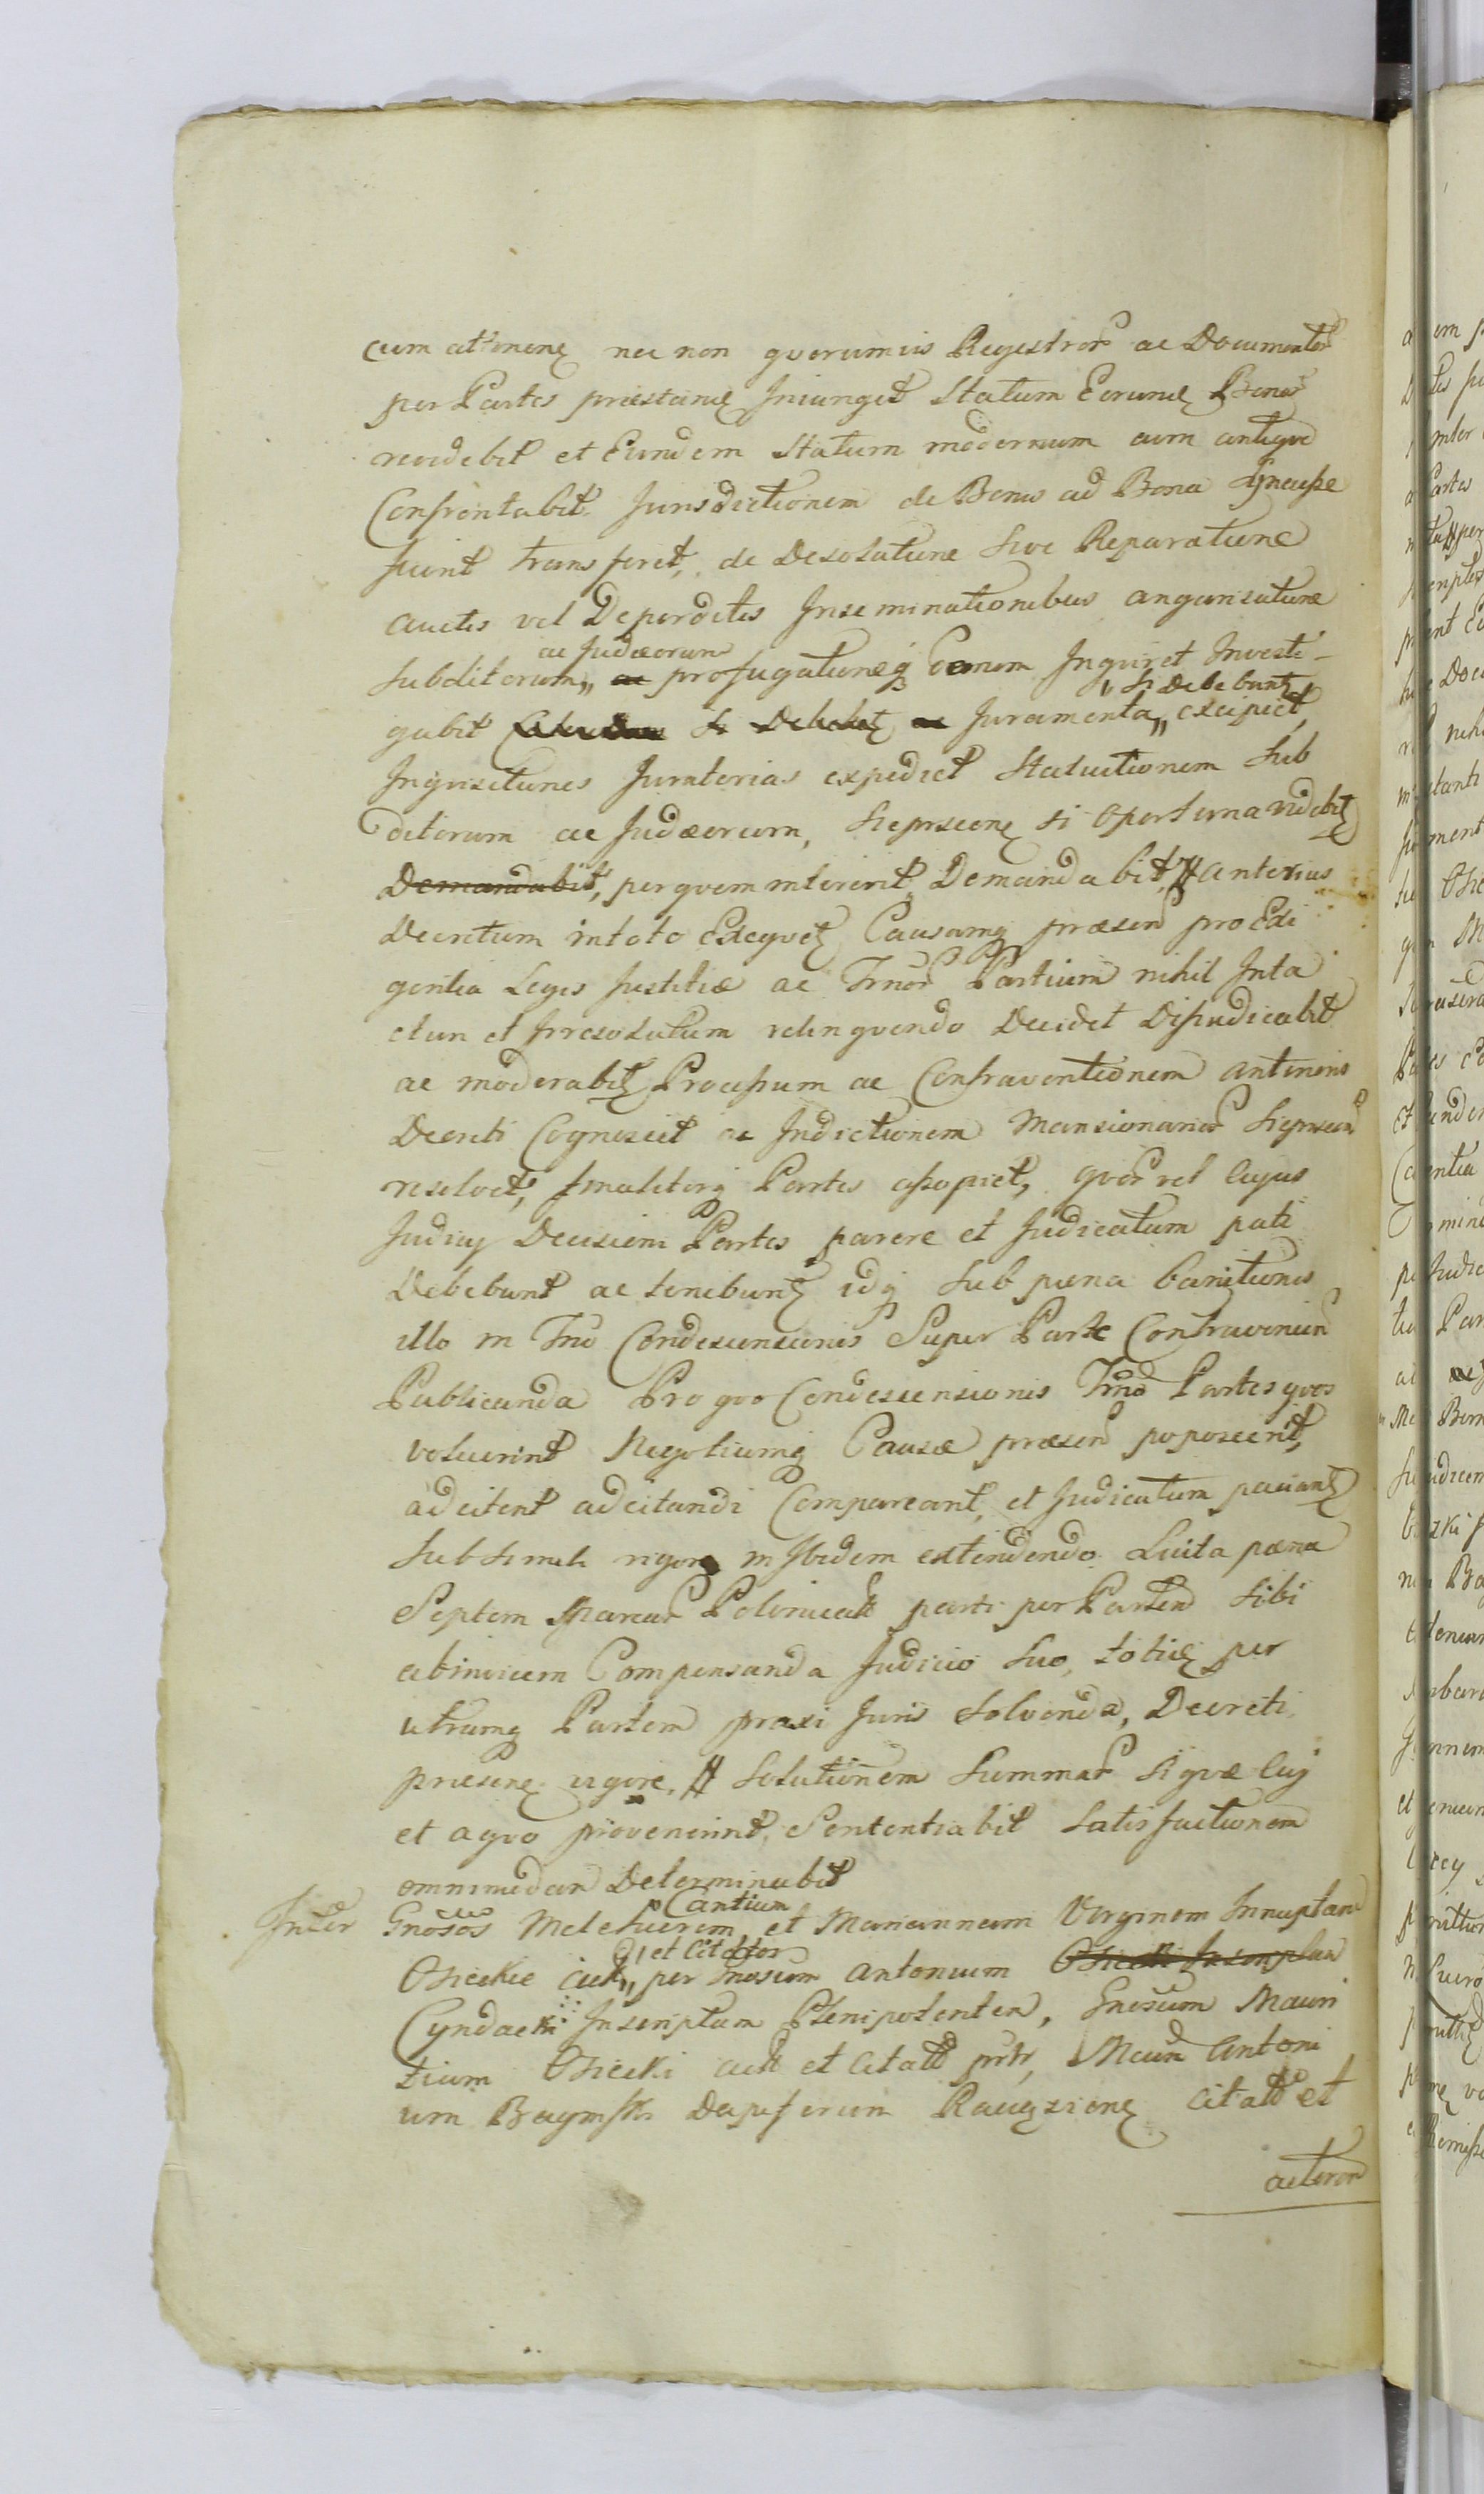 cum attinenę nec non quorumvis Regestror ac Documentor
per Partes præstanię Iniunget Statum Eorundę Bonor
revidebit et Eundem Statum modernum cum antiquo
Confrontabit Jurisdictionem de Bonis ad Bona
fuerit transferet, de Desolatione sive Reparatione
auctis vel Deperditis Inseminationibus angarisatione
ac Judæorum
Subditorum,, ac profugationeq Eorum Inquiret Investi-
si Debebunt
gabit si Debebit ac Juramenta,, excipiet,
Inquisitiones Juratorias expediet Statuitionem Sub
ditorum ac Judæorum, si oportuna videbit
Demandabit, per quem intererit Demandabit, # anterius
Decretum in toto Exequet Causamq præsen pro Exi
gentia Legis Justitiæ ac Tmor Partium nihil Inta
ctum et Iresolutum relinquendo Decidet Dijudicabit
ac moderabit Processum ac Contraventionem anterioris
Decreti Cognoscet ac Indictionem Mansionarior
resolvet, finaliterq Partes assopiet, quor vel cujus
Judicy Decisioni Partes parere et Judicatum pati
Debebunt ac tenebunt idq sub pæna banitionis
illo in Tno Condescensionis Super Parte Contravenien
Publicanda Pro quo Condescensionis Tmo Partes quos
voluerint Negotiumq Causæ præsen poposcerit,
adcitent adcitandi Compareant, et Judicatum paciant
sub simili rigore in Ibidem extendendo Luita pæna
Septem Marcar Polonicall parti per Partem sibi
abinvicem Compensanda Judicio suo, totidę per
utramq Partem praxi Juris solvenda, Decreti
præsenę vigore, # Solutionem Summar si quæ cuj
et a quo provenerint, Sententiabit Satisfactionem
omnimodam Determinabit
Inter Gnosos Melchiorem et Mariannam Virginem Innuptam
antium
et Citator
Osieckie act,, per Gnosum Antonium
Cyndacki Inscriptum Plenipotenten, Gnosum Mauri
tium Osiecki act et citatt Antoni
um Dapiferum citatt et
actoron